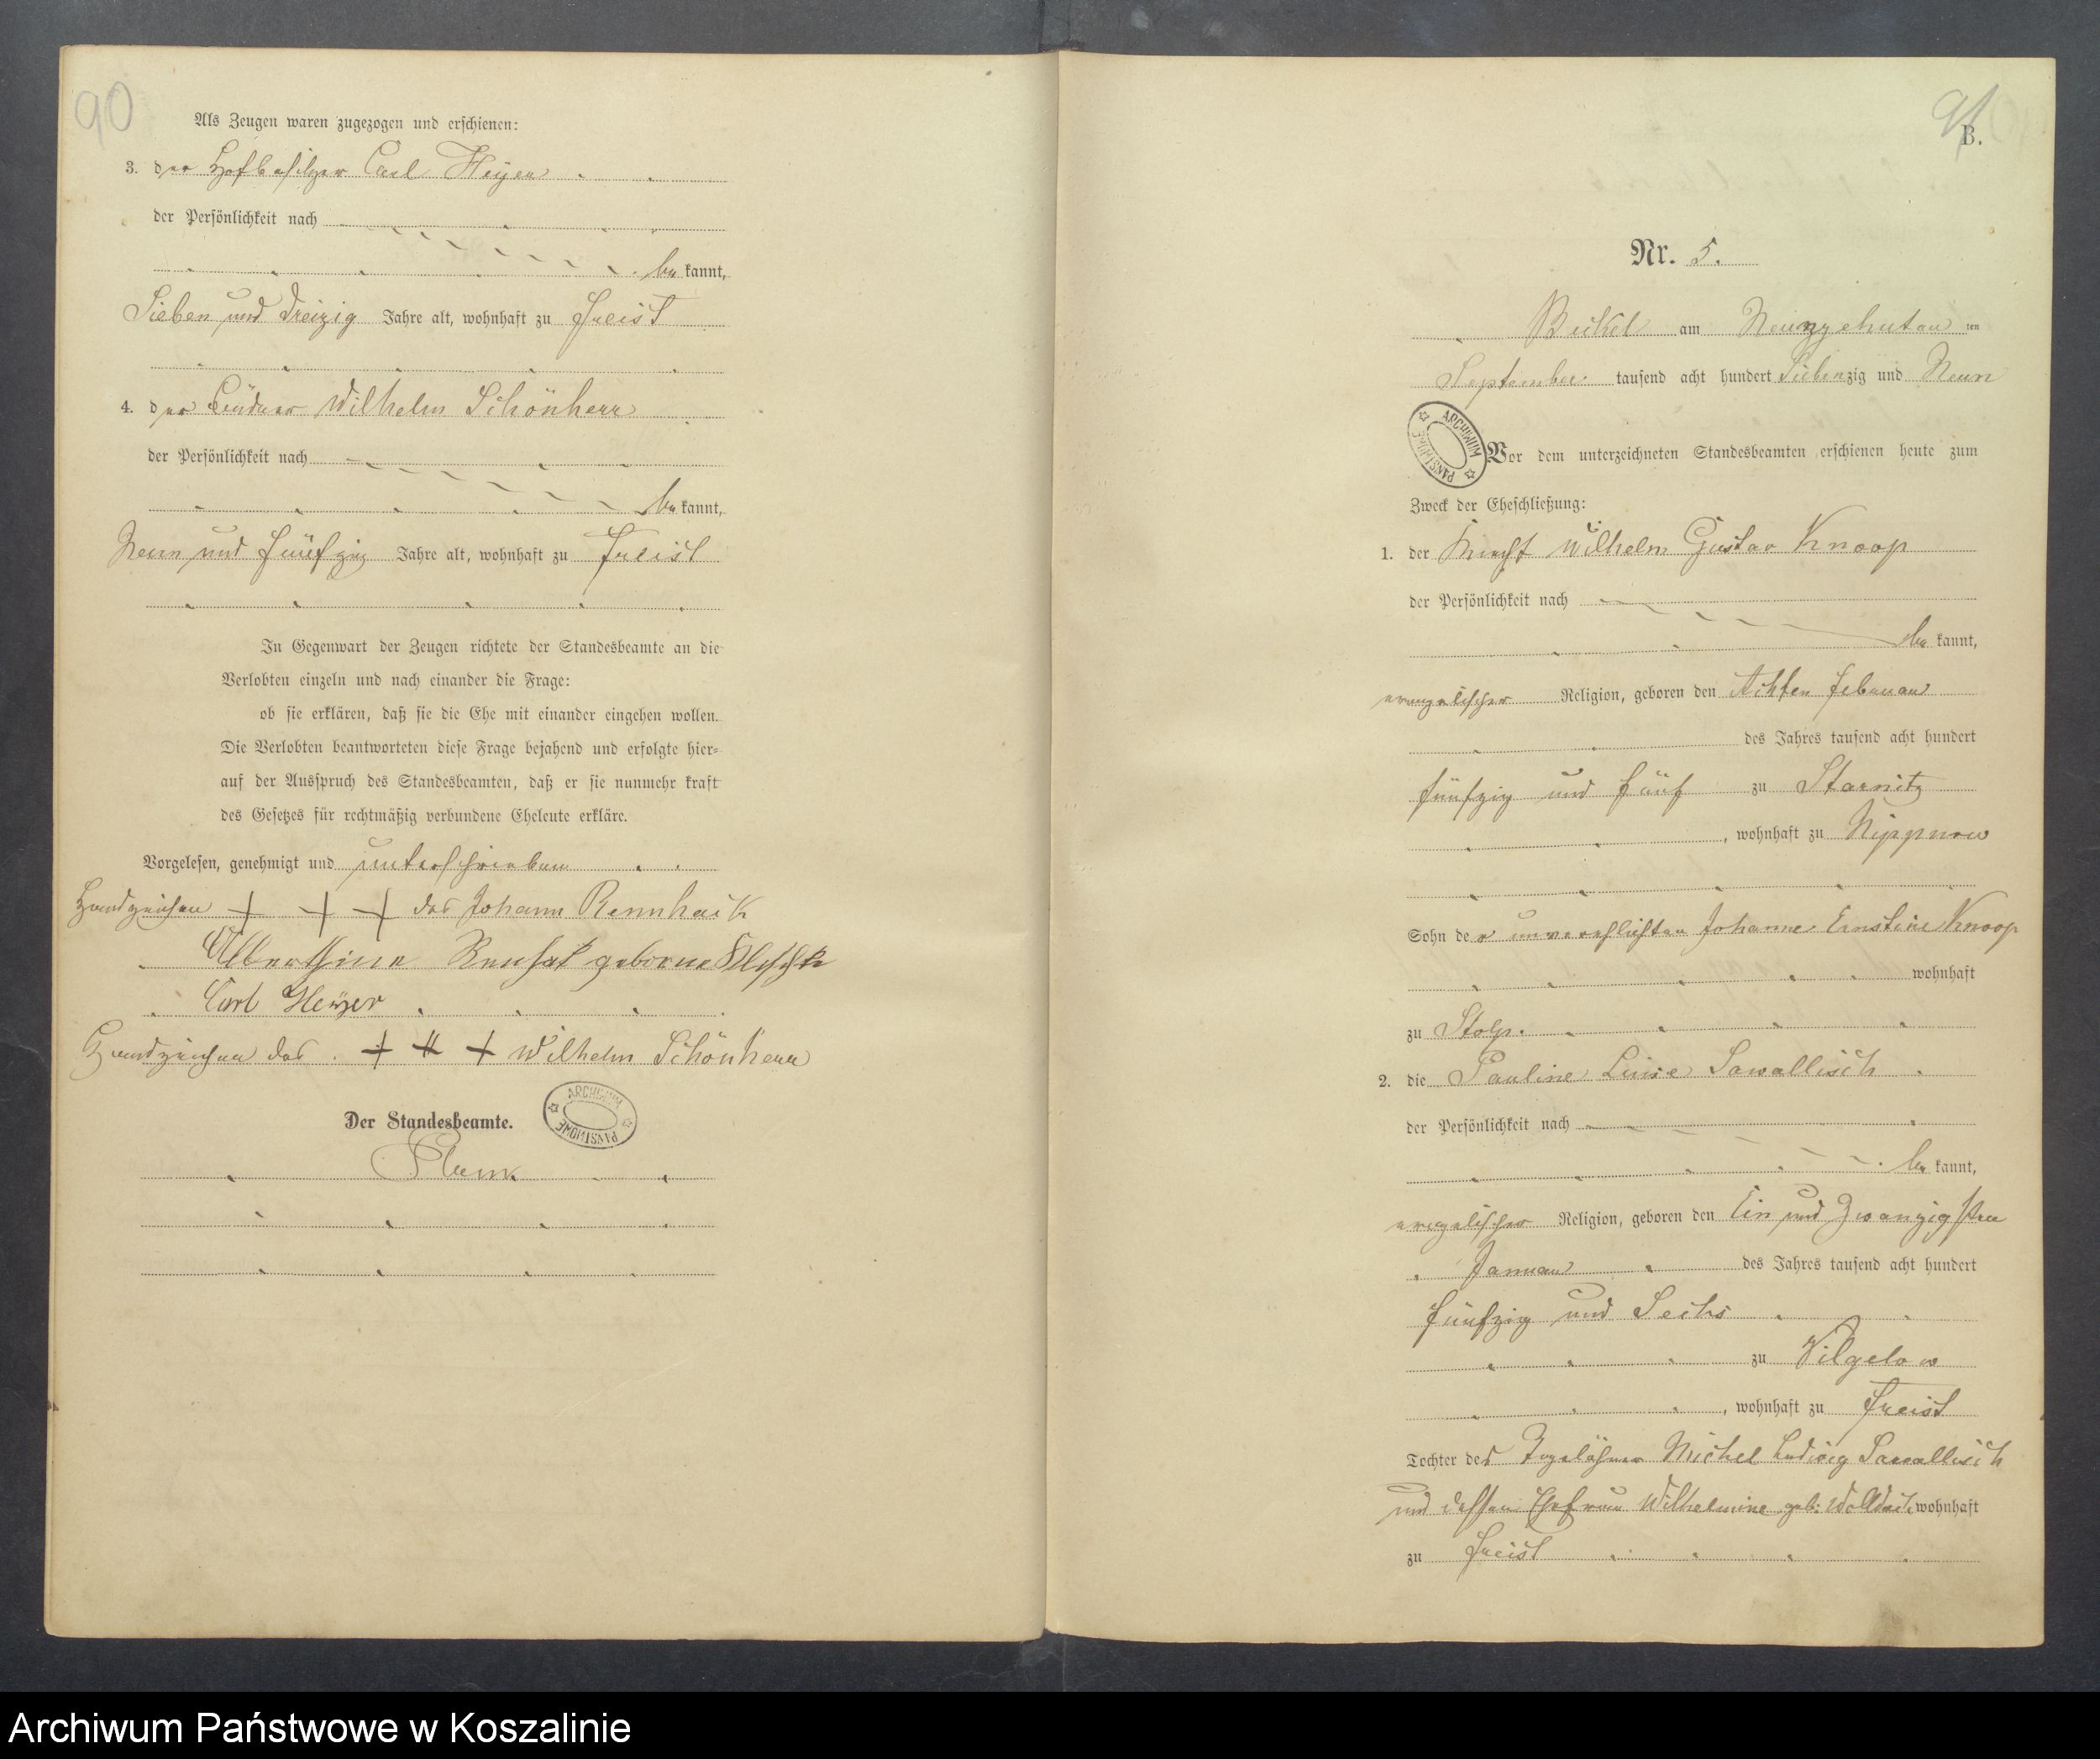 90
Als Zeugen waren zugezogen und erschienen:
3. der Hofbesitzer Carl Heyer
der Persönlichkeit nach
bekannt,
Sieben und dreizig Jahre alt, wohnhaft zu Freist
4. der Büdner Wilhelm Schönherr
der Persönlichkeit nach
bekannt,
Neun und fünfzig Jahre alt, wohnhaft zu Freist
In Gegenwart der Zeugen richtete der Standesbeamte an die
Verlobten einzeln und nach einander die Frage:
ob sie erklären, daß sie die Ehe mit einander eingehen wollen.
Die Verlobten beantworteten diese Frage bejahend und erfolgte hier-
auf der Ausspruch des Standesbeamten, daß er sie nunmehr kraft
des Gesetzes für rechtmäßig verbundene Eheleute erkläre.
Vorgelesen, genehmigt und unterschrieben
Handzeichen + + + des Johann Rennhack
Alberthine geborne
Carl Heyer
Handzeichen des + + + Wilhelm Schönherr
Der Standesbeamte.
ARCHIWUM PAŃSTWOWE
91
B.
Nr. 5.
am Neunzehnten ten
September tausend acht hundert Siebenzig und Neun
ARCHIWUM PAŃSTWOWE
Vor dem unterzeichneten Standesbeamten erschienen heute zum
Zweck der Eheschließung:
1. der Knecht Wilhelm Gustav Knoop
der Persönlichkeit nach
bekannt,
evangelischer Religion, geboren den Achten Februar
des Jahres tausend acht hundert
fünfzig und fünf zu Starnitz
, wohnhaft zu
Sohn der unverehlichten Johanne Ernstine Knoop
wohnhaft
zu Stolp.
2. die Pauline Luise Sawallisch
der Persönlichkeit nach
bekannt,
evangelischer Religion, geboren den Ein und Zwanzigsten
Januar des Jahres tausend acht hundert
fünfzig und Sechs
zu Vilgelow
, wohnhaft zu Freist
Tochter des Tagelöhner Michel Ludwig Sawallisch
und dessen Ehefrau Wilhelmine geb. wohnhaft
zu Freist
Archiwum Państwowe w Koszalinie